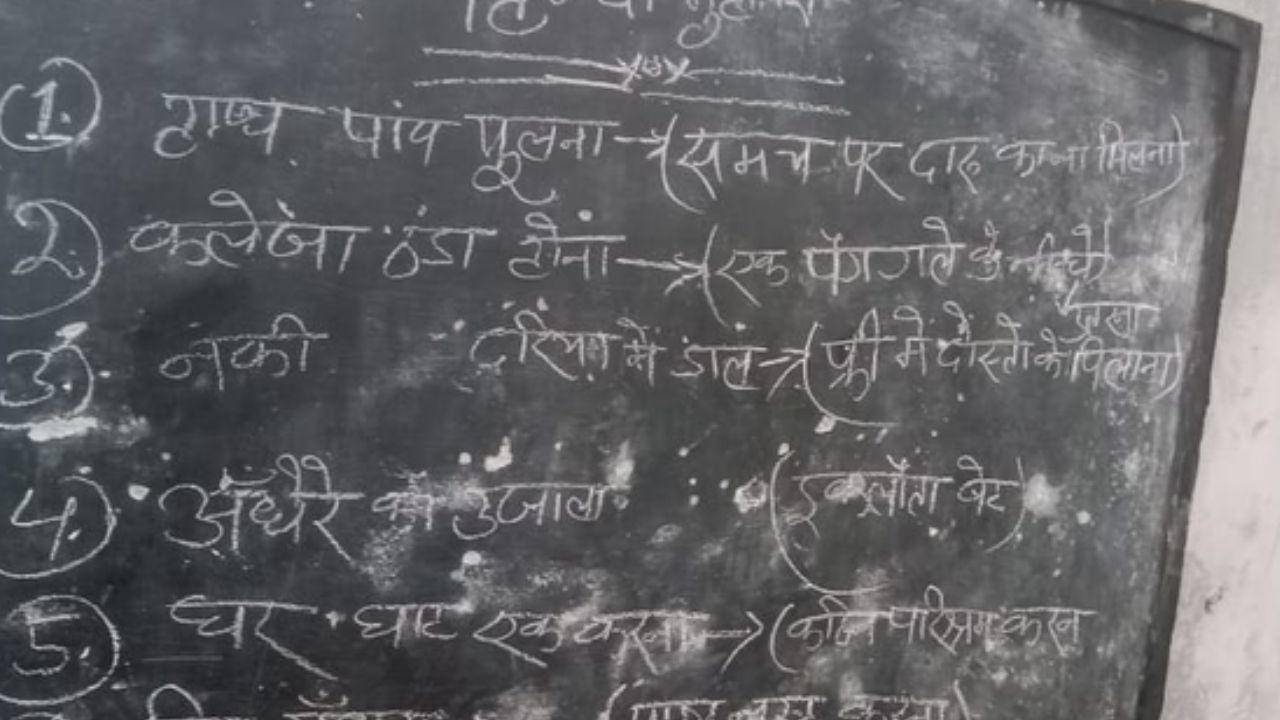 हिन्दी मुहावरे
1. हाथ पांव फूलना → (समय पर दारू का ना मिलना)
2. कलेजा ठंडा होना → (एक पैग गले के नीचे
उतरना
3. नेकी दरिया में डाल → (फ्री में दोस्तो को पिलाना)
4. अँधेरे का उजाला (इकलौता बेट)
5. घर घाट एक करना → (कठिन परिश्रम करन